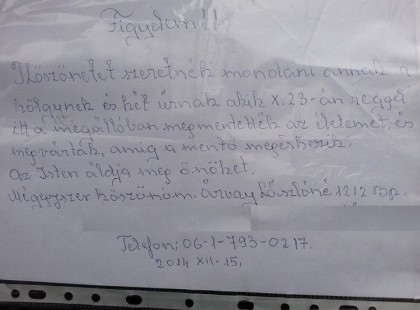 Figyelem!!
Köszönetet szeretnék mondani annak a
hölgynek és hét úrnak akik X.23-án reggel
itt a megállóban megmentették az életemet, és
megvárták, amíg a mentő megérkezik.
Az Isten áldja meg önöket.
Mégegyszer köszönöm. Árvay Lászlóné 1212 Bp.
Telefon: 06-1-793-0217.
2014 XII-15.